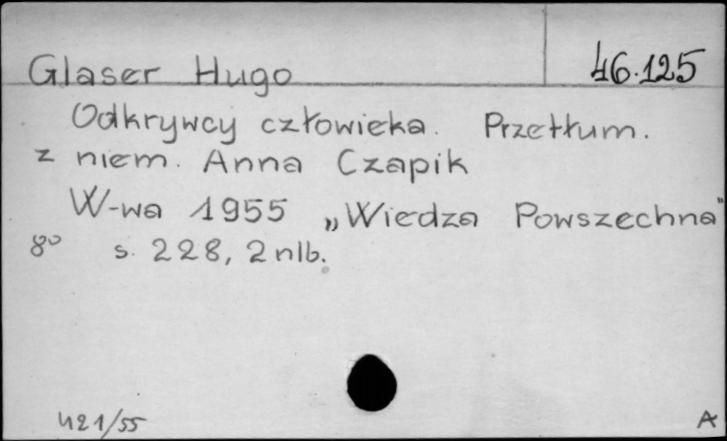 Glaser Hugo 46.125
Odkrywcy człowieka. Przetłum.
z niem. Anna Czapik
W-wa 1955 „Wiedza Powszechna"
8° s. 228, 2 nlb.
421/55 A